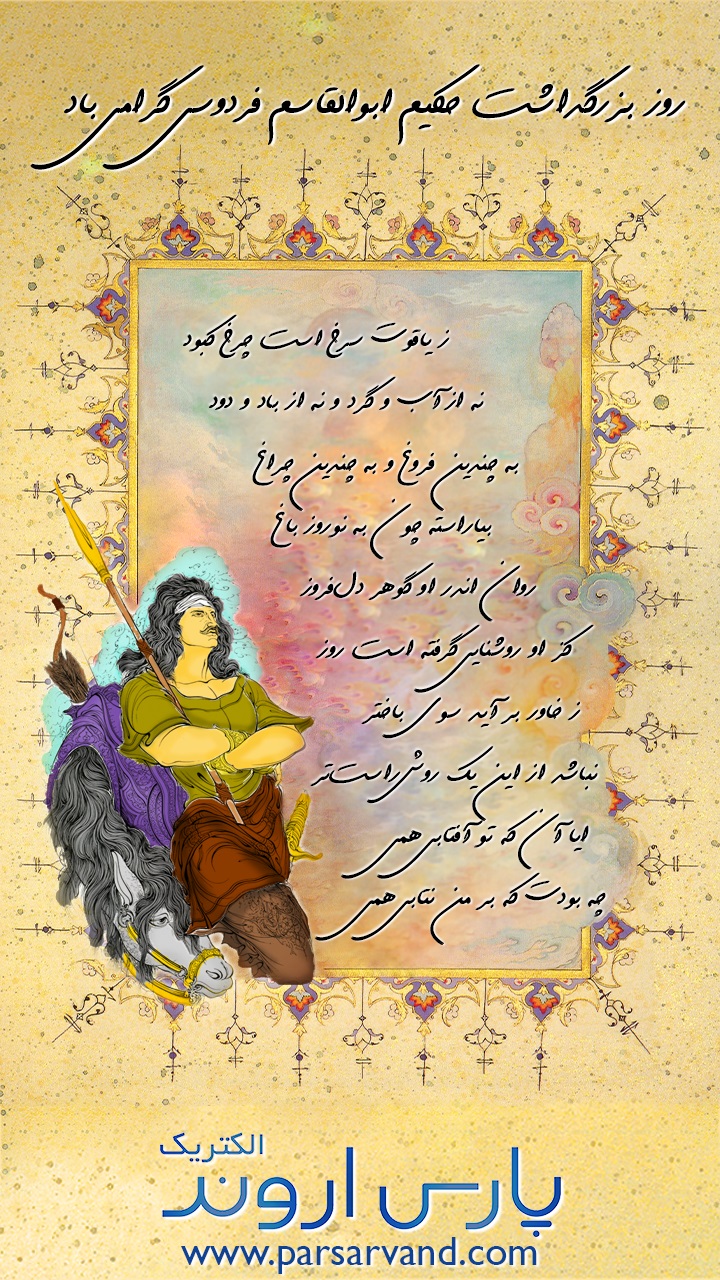 روز بزرگداشت حکیم ابوالقاسم فردوسی گرامی باد
ز یاقوت سرخ است چرخ کبود
نه از آب و گرد و نه از باد و دود
به چندین فروغ و به چندین چراغ
بیاراسته چون به نوروز باغ
روان اندر او گوهر دل‌فروز
کز او روشنایی گرفته است روز
ز خاور بر آید سوی باختر
نباشد از این یک روش راست‌تر
ایا آن که تو آفتابی همی
چه بودت که بر من نتابی همی
الکتریک
پارس اروند
www.parsarvand.com